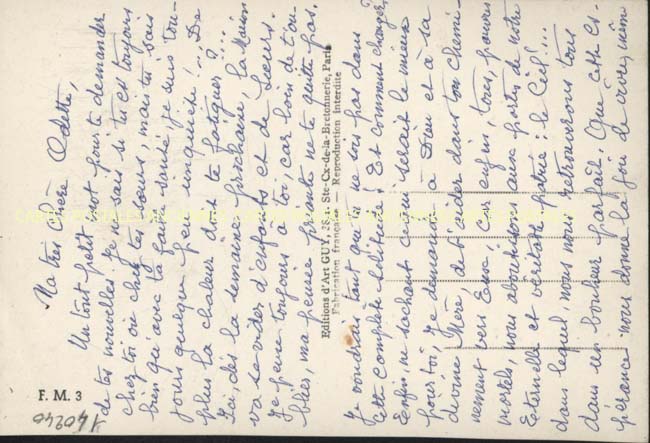 Ma très chère Odette,
Un tout petit mot pour te demander
de tes nouvelles. Je ne sais si tu es toujours
chez toi ou chez les sœurs, mais tu sais
bien qu'avec ta faible santé, je suis tou-
jours quelque peu inquiète!.. De
plus la chaleur doit te fatiguer?...
Ici, dès la semaine prochaine, la Maison
va se vider d'enfants et de sœurs.
Je pense toujours à toi, car loin de t'ou-
blier, ma pensée priante ne te quitte pas.
Je voudrais tant que tu ne sois pas dans
cette complète solitude! Et comment changer?
Enfin, ne sachant ce qui serait le mieux
pour toi, je demande à Dieu et à sa
divine Mère de t'aider dans ton chemi-
nement vers Eux: car enfin tous, pauvres
mortels, nous aboutirons aux portes de notre
Eternelle et véritable patrie: le Ciel!...
dans lequel, nous nous retrouverons tous
dans un bonheur parfait. Que cette es-
pérance nous donne la joie de vivre, même
Editions d'Art GUY, 28, r. Ste-Cx-de-la-Bretonnerie, Paris
Fabrication française — Reproduction Interdite
F. M. 3